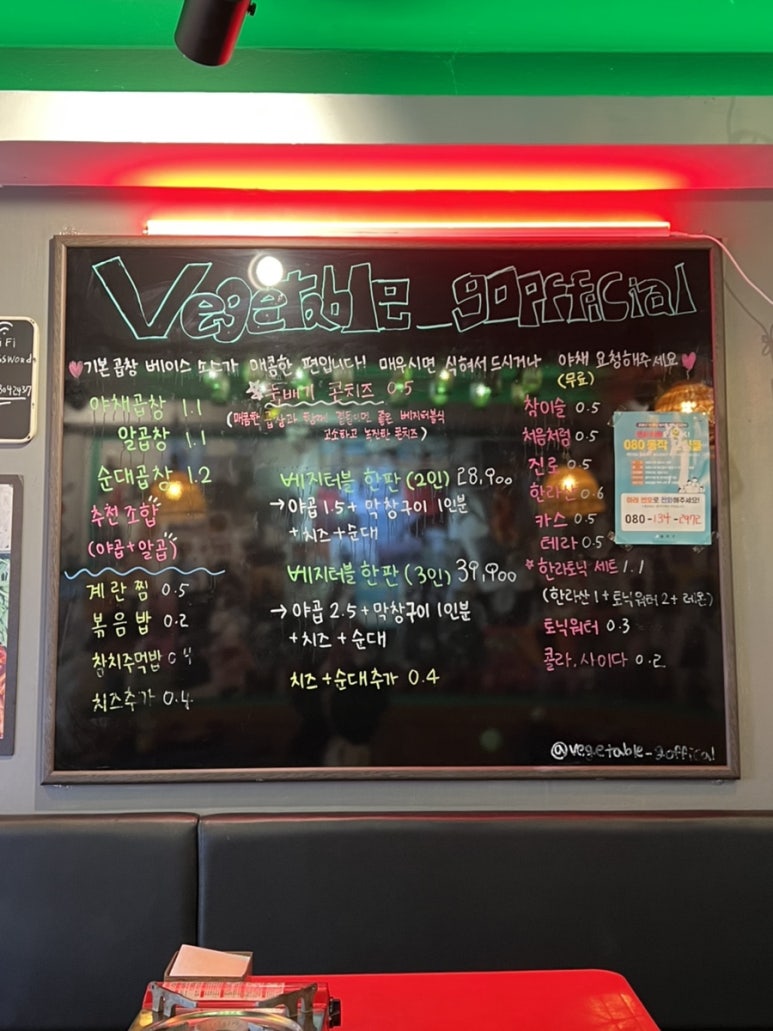 Vegetable_gopfficial
기본곱창 베이스 소스가 매콤한 편입니다! 매우시면 식혀서 드시거나 야채 요청해주세요
(무료)
야채곱창 1.1
알곱창 1.1
순대곱창 1.2
추천조합
(야곱+알곱)
계란찜 0.5
볶음밥 0.2
참치주먹밥 0.4
치즈추가 0.4
뚝배기 콘치즈 0.5
(매콤한 곱창과 함께 곁들이면 좋은 베지터블식
고소하고 눅진한 콘치즈)
베지터블 한판 (2인) 28,900
→야곱 1.5+ 막창구이 1인분
+치즈+순대
베지터블 한판 (3인) 39,900
→야곱 2.5+막창구이 1인분
+치즈+순대
치즈+순대추가 0.4
참이슬 0.5
처음처럼 0.5
진로 0.5
한라산 0.6
카스 0.5
테라 0.5
한라토닉 세트 1.1
(한라산1+토닉워터2+레몬)
토닉워터 0.3
콜라.사이다 0.2
@vegetable_gofficial
080
아래 번호로 전화해주세요!
080-134-2472